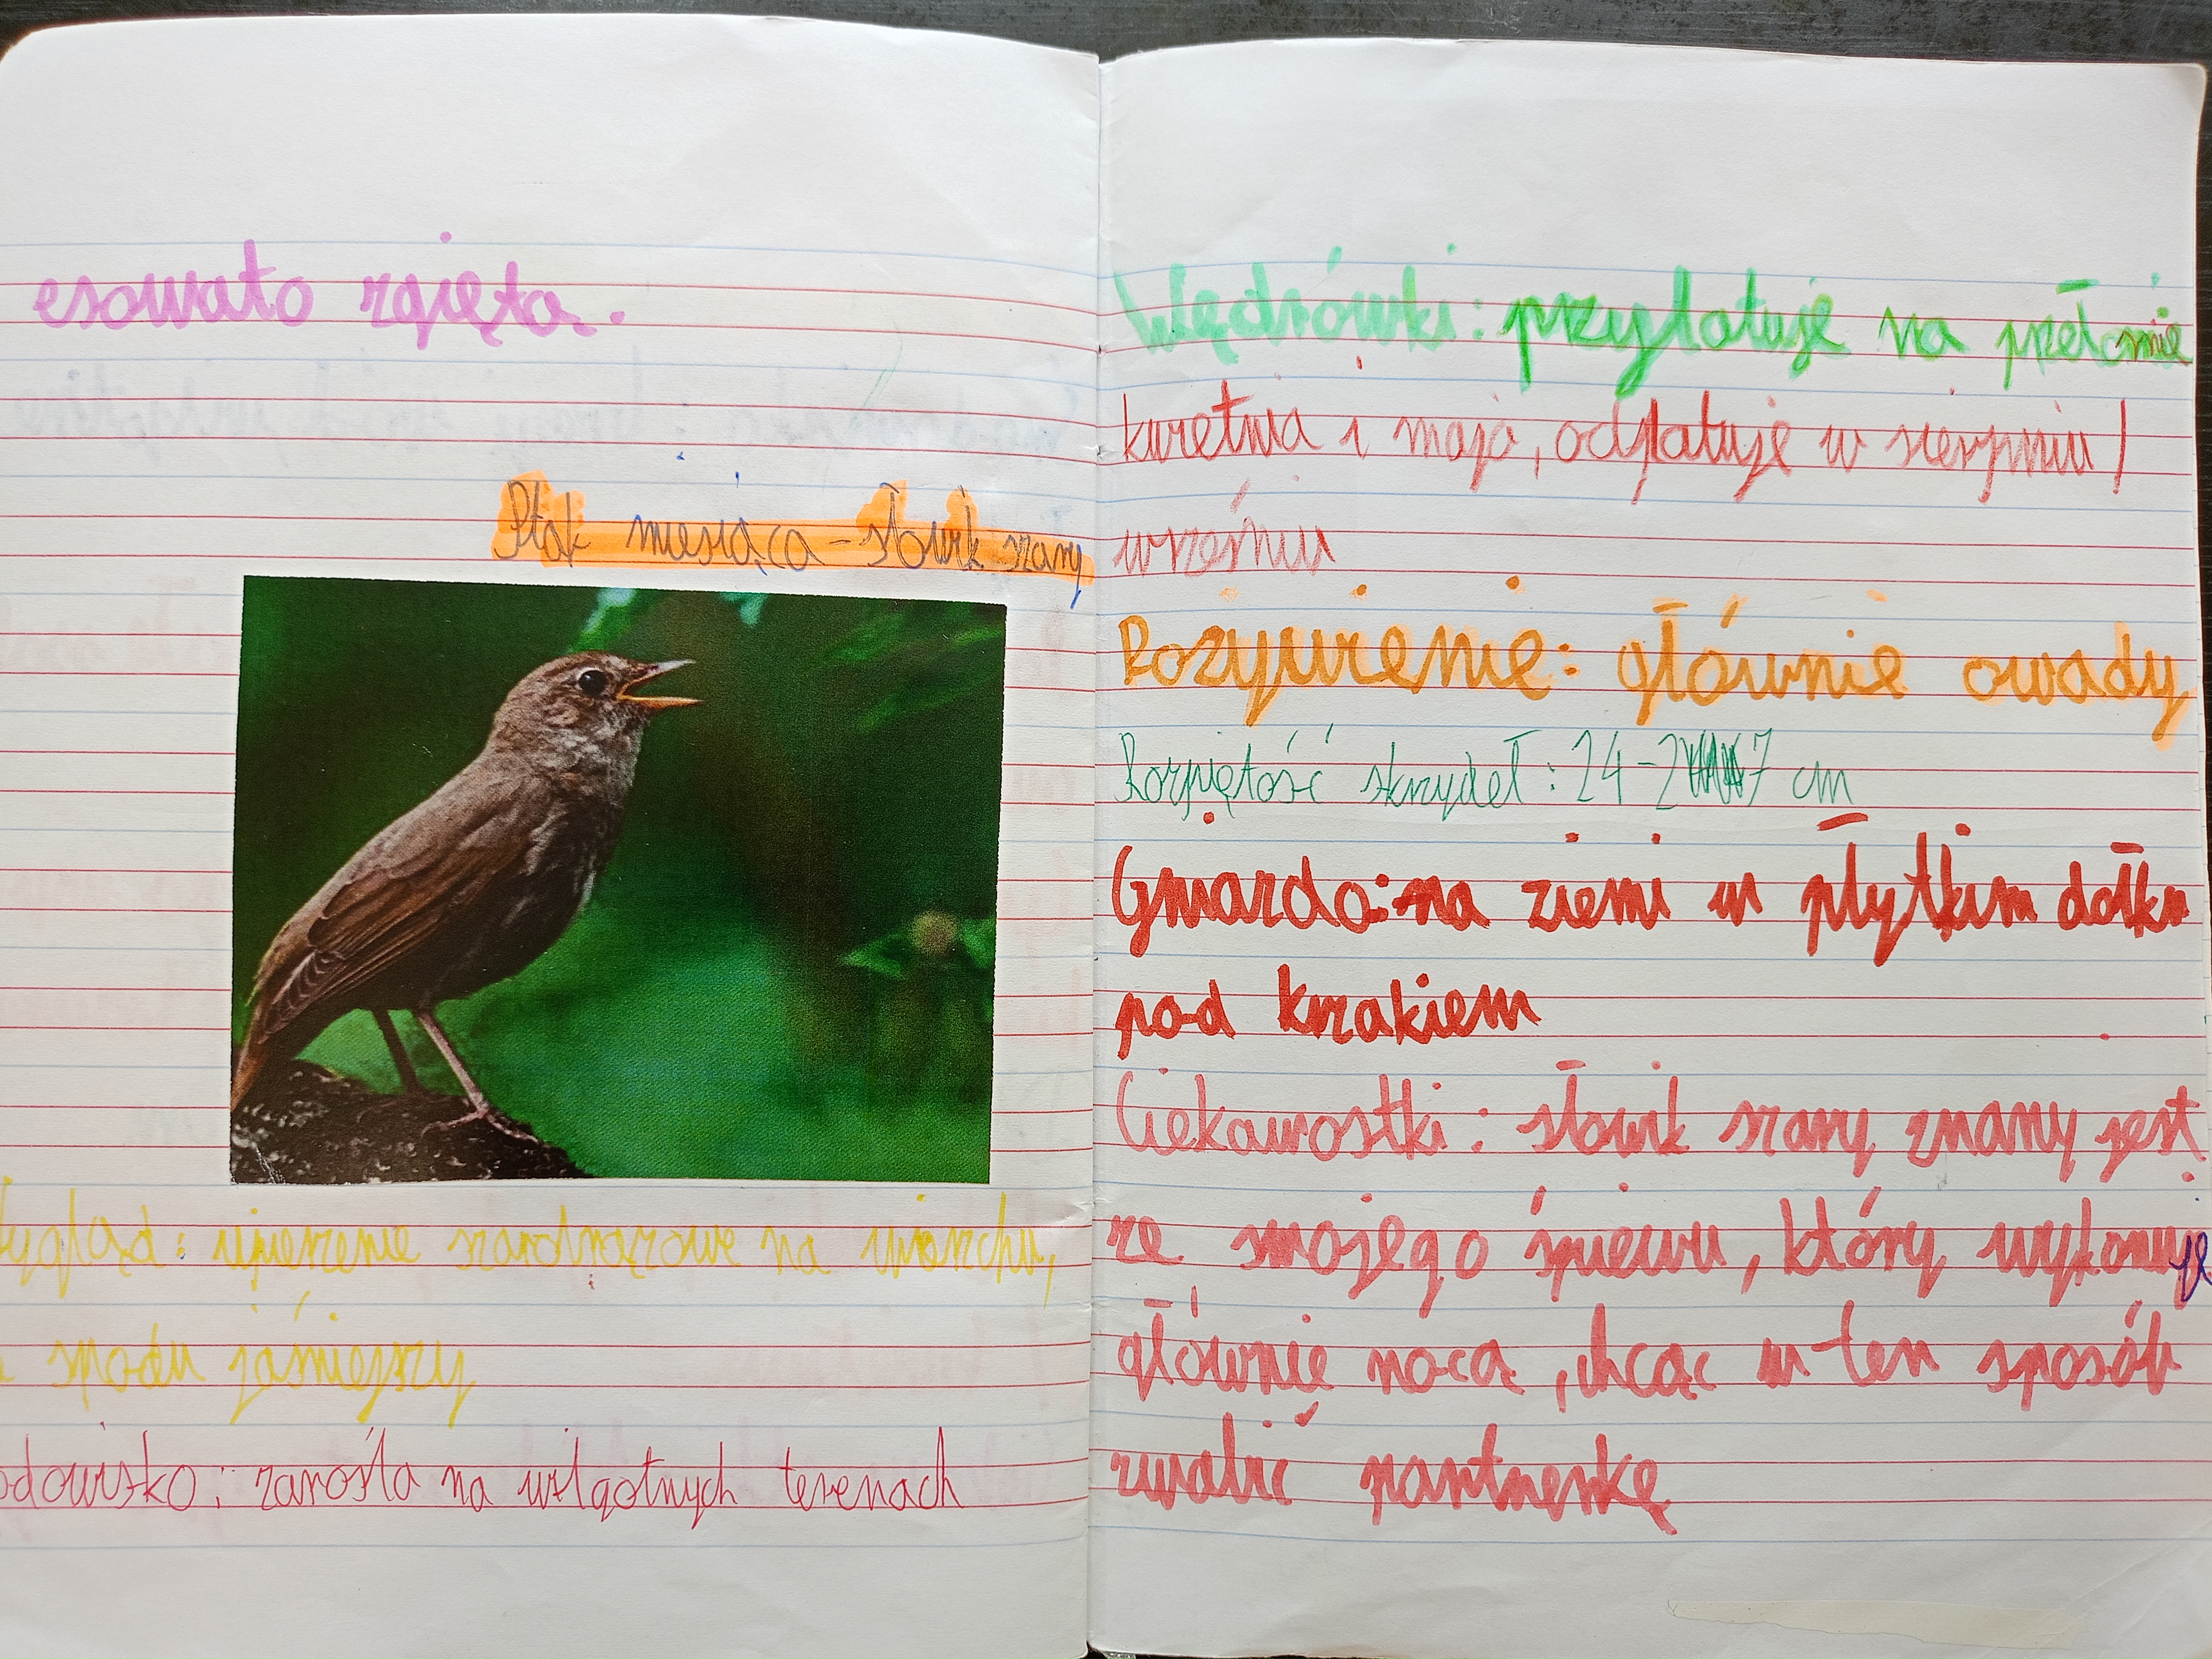 esowato zgięta.
Ptak miesiąca - słowik szary
ygląd: upierzenie szarobrązowe na wierzchu,
spodu jaśniejszy
odowisko: zarośla na wilgotnych terenach
Wędrówki: przylatuje na przełomie
kwietnia i maja, odlatuje w sierpniu/
wrześniu
Pożywienie: głównie owady
Rozpiętość skrzydeł: 24-27 cm
Gniazdo: na ziemi w płytkim dołku
pod krzakiem
Ciekawostki: słowik szary znany jest
ze swojego śpiewu, który wykonuje
głównie nocą, chcąc w ten sposób
zwabić partnerkę